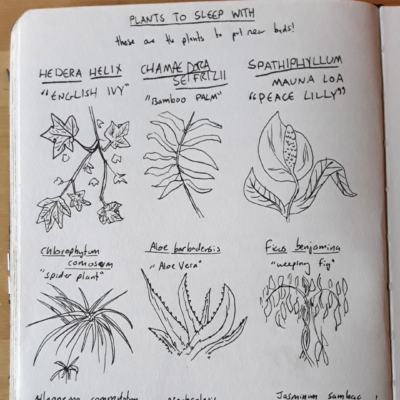 PLANTS TO SLEEP WITH
these are the plants to put near beds!
HEDERA HELIX
"ENGLISH IVY"
CHAMAEDORA
SEIFRIZII
"BAMBOO PALM"
SPATHIPHYLLUM
MAUNA LOA
"PEACE LILLY"
Chlorophytum
comosum
"spider plant"
Aloe barbadensis
"Aloe Vera"
Ficus benjamina
"weeping fig"
Jasminum sambac